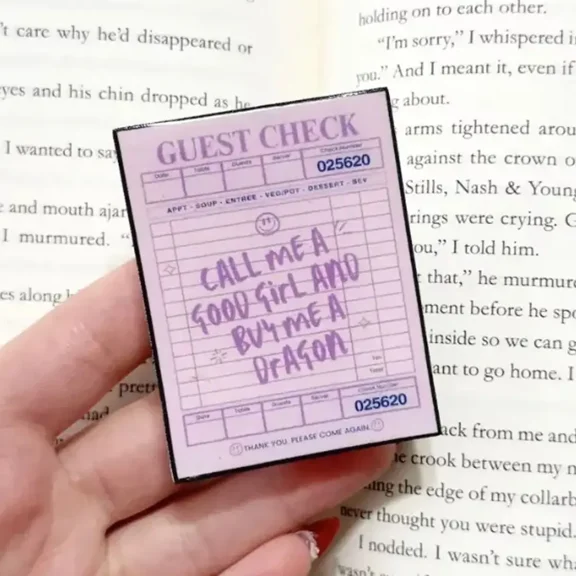 't care why he'd disappeared or
eyes and his chin dropped as he
I wanted to say
e and mouth ajar
I murmured. "
es along h
prett
had
GUEST CHECK
Date Table Guests Server Check Number
025620
APPT - SOUP - ENTREE - VEG/POT - DESSERT - BEV
CALL ME A
GOOD GIRL AND
BUY ME A
DRAGON
Tax
Total
Date Table Guests Server Check Number
025620
THANK YOU. PLEASE COME AGAIN
holding on to each other.
"I'm sorry," I whispered i
you." And I meant it, even if
g about.
arms tightened arou
against the crown o
Stills, Nash & Young
rings were crying. G
ou," I told him.
that," he murmure
ment before he spo
inside so we can g
ant to go home. I
ack from me and
he crook between my n
ing the edge of my collarb
never thought you were stupid.
I nodded. I wasn't sure wha
wasn't